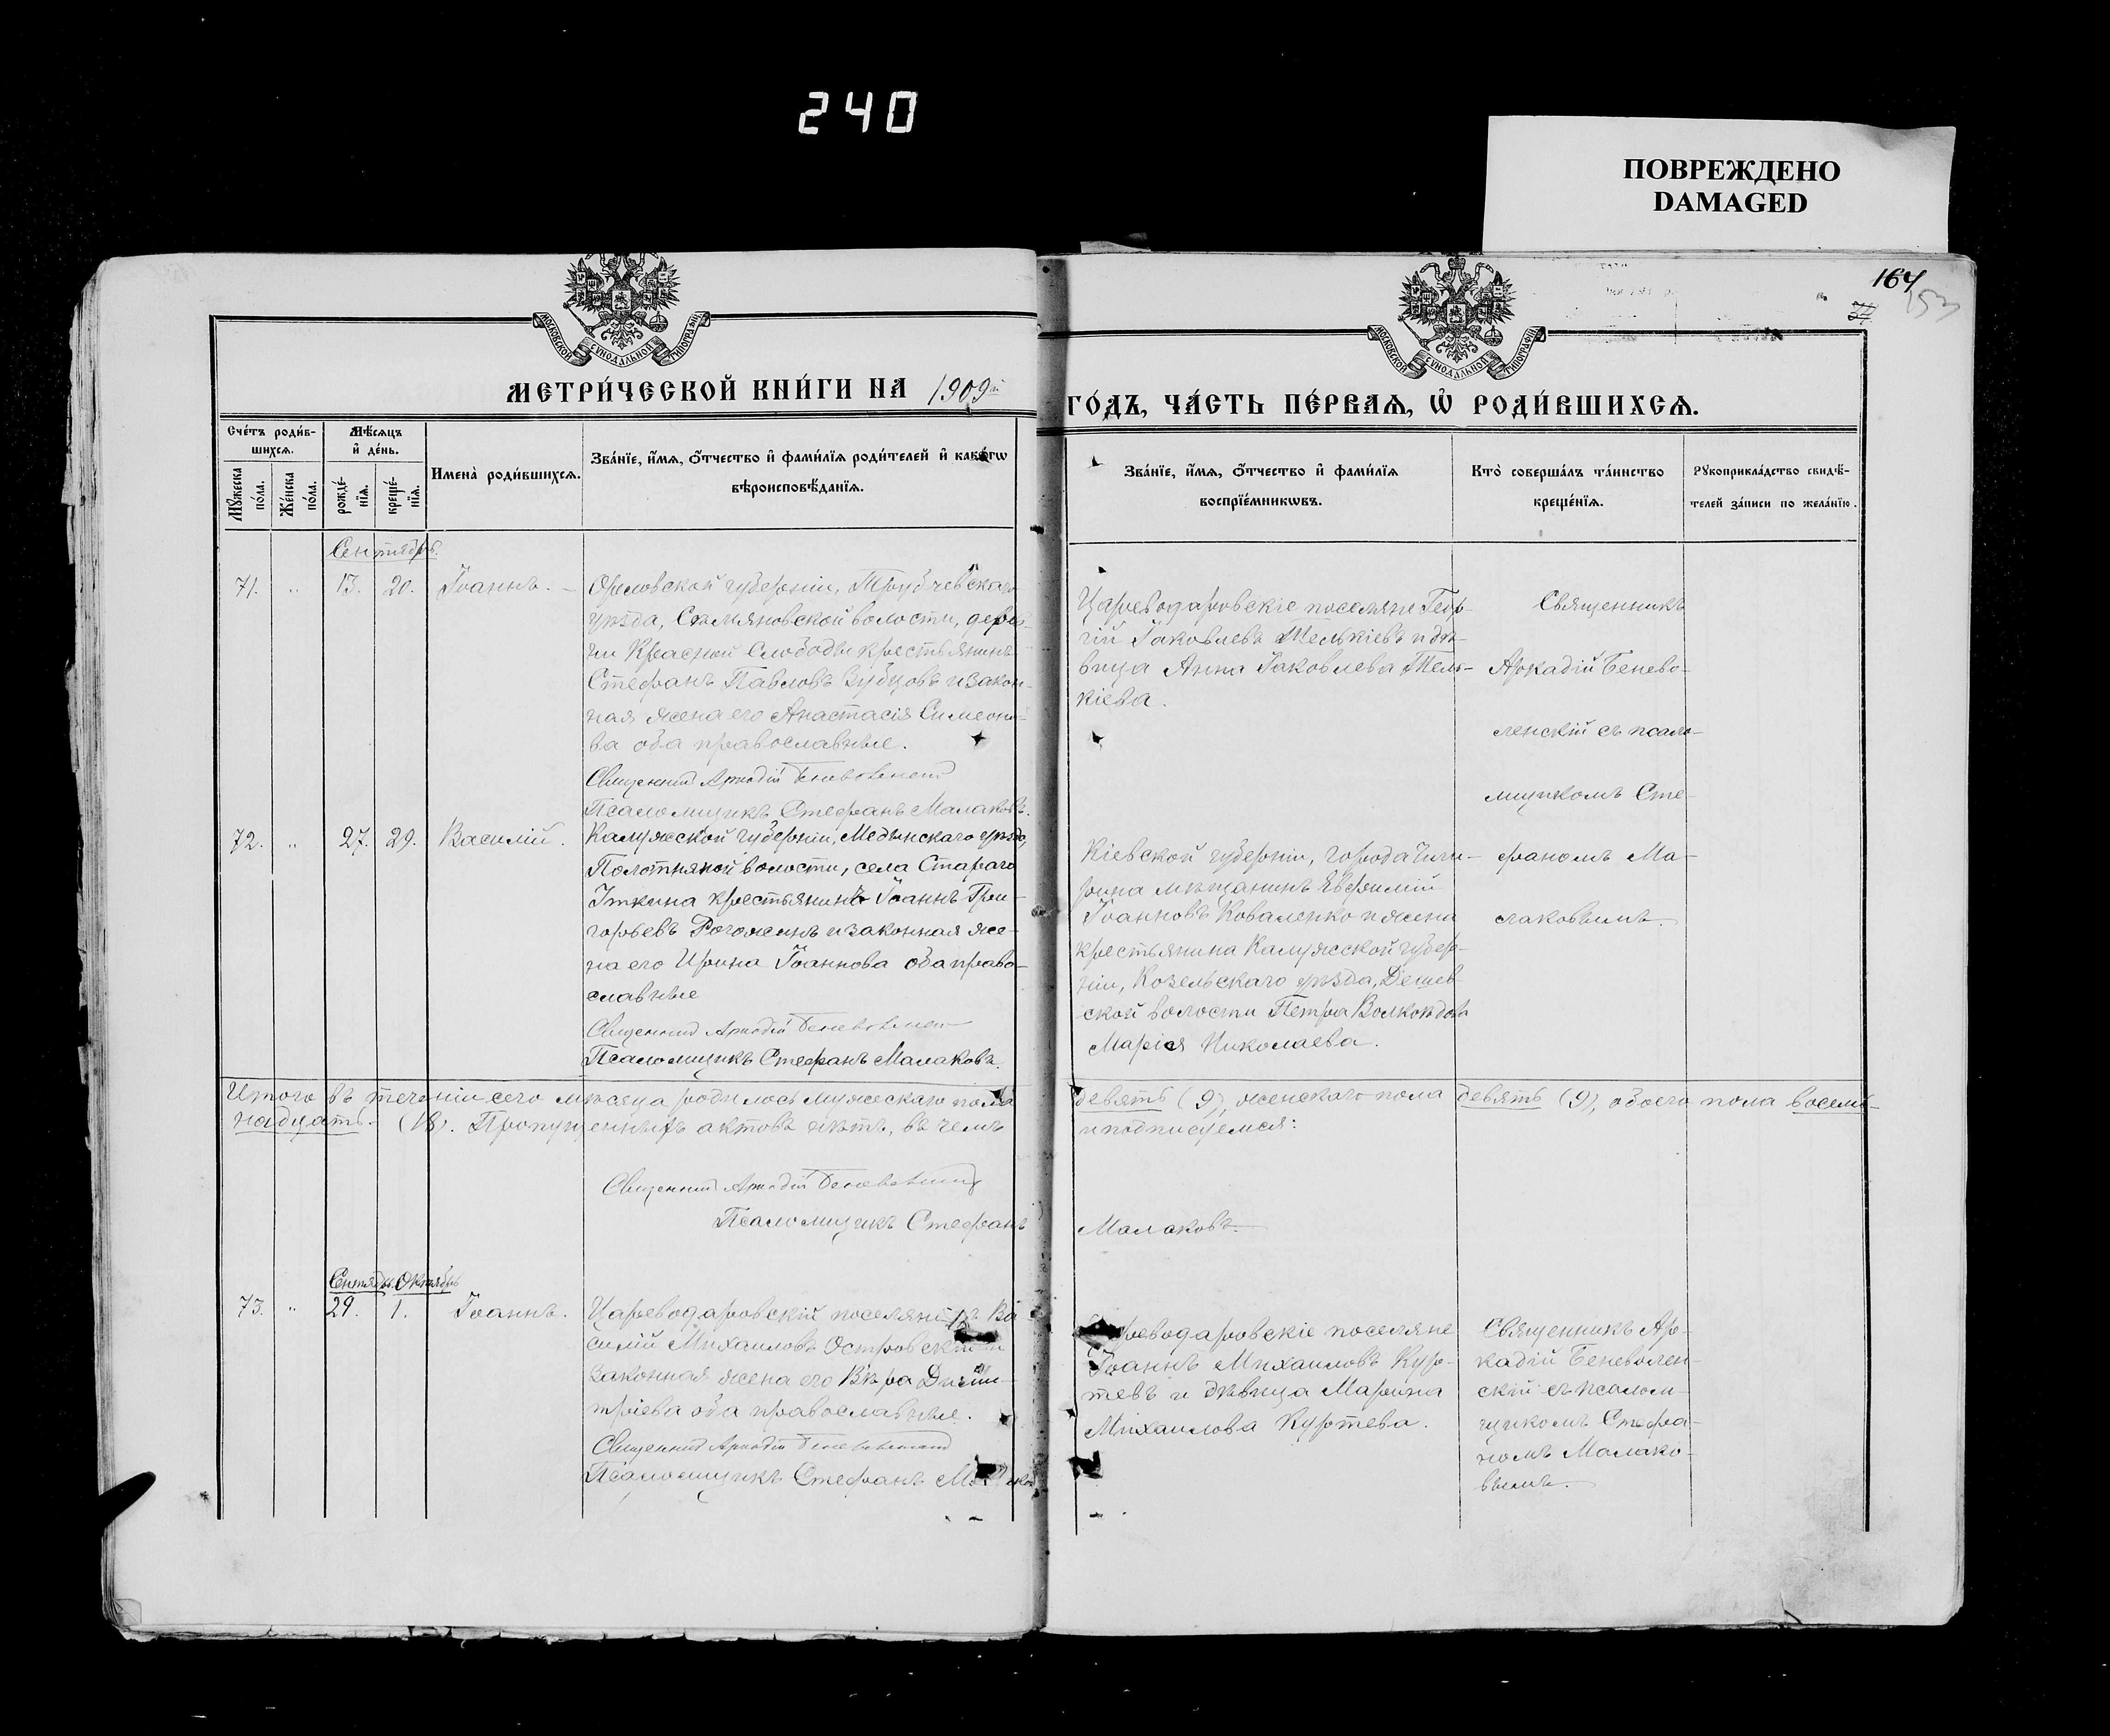 240
ПОВРЕЖДЕНО
DAMAGED
164
МОСКОВСКОЙ СѴНОДАЛЬНОЙ ТИПОГРАФІИ
МОСКОВСКОЙ СѴНОДАЛЬНОЙ ТИПОГРАФІИ
МЕТРИ́ЧЕСКОЙ КНИ́ГИ НА 1909й
ГО́ДЪ, ЧА́СТЬ ПЕ́РВАѦ, Ѽ РОДИ́ВШИХСѦ.
Сче́тъ роди́в-
шихсѧ.
Мꙋ́жеска по́ла.
Же́нска по́ла.
Мѣ́сѧцъ
и҆ де́нь.
рожде́-нїѧ.
креще́-нїѧ.
Имена̀ роди́вшихсѧ.
Зва́нїе, и҆́мѧ, о҆́тчество и҆ фами́лїѧ роди́телей и҆ како́гѡ
вѣроисповѣ́данїѧ.
Зва́нїе, и҆́мѧ, о҆́тчество и҆ фами́лїѧ
воспрїе́мникѡвъ.
Кто̀ соверша́лъ та́инство
креще́нїѧ.
Рꙋкоприкла́дство свидѣ́-
телей за́писи по жела́нїю.
Сентябрь.
71. " 13. 20. Іоаннъ. –
Орловской губерніи, Трубчевскаго
уѣзда, Селяновской волости, дерев-
ни Красной Слободы крестьянинъ
Стефанъ Павловъ Зубцовъ и закон-
ная жена его Анастасія Симеоно-
ва оба православные.
Священникъ Аркадій Беневоленскій
Псаломщикъ Стефанъ Малаковъ.
Цареводаровскіе поселяне Геор-
гій Іаковлевъ Телькіевъ и дѣ-
вица Анна Іаковлева Тель-
кіева.
Священникъ
Аркадій Бенево-
ленскій съ псало-
мщикомъ Сте-
фаномъ Ма-
лаковымъ.
72. " 27. 29. Василій.
Калужской губерніи, Медынскаго уѣзда,
Полотняной волости, села Стараго
Уткина крестьянинъ Іоаннъ Гри-
горьевъ Рогожинъ и законная же-
на его Ирина Іоаннова оба право-
славные
Священникъ Аркадій Беневоленскій
Псаломщикъ Стефанъ Малаковъ.
Кіевской губерніи, города Чиги-
рина мѣщанинъ Евфимій
Іоанновъ Коваленко и жена
крестьянина Калужской губер-
ніи, Козельскаго уѣзда, Дешев-
ской волости Петра
Марія Николаева.
Итого въ теченіи сего мѣсяца родилось мужескаго пола девять (9), женскаго пола девять (9), обоего пола восемь-
надцать. (18). Пропущенныхъ актовъ нѣтъ, въ чемъ и подписуемся:
Священникъ Аркадій Беневоленскій
Псаломщикъ Стефанъ Малаковъ.
Сентябрь. Октябрь
73. " 29. 1. Іоаннъ.
Цареводаровскій поселянинъ Ва
силій Михаиловъ Островскій и
законная жена его Вѣра Дими-
тріева оба православные.
Священникъ Аркадій Беневоленскій
Псаломщикъ Стефанъ
реводаровскіе поселяне
Іоаннъ Михаиловъ Кур-
тевъ и дѣвица Марина
Михаилова Куртева.
Священникъ Ар-
кадій Беневолен-
скій съ псалом-
щикомъ Стефа-
номъ Малако-
вымъ.